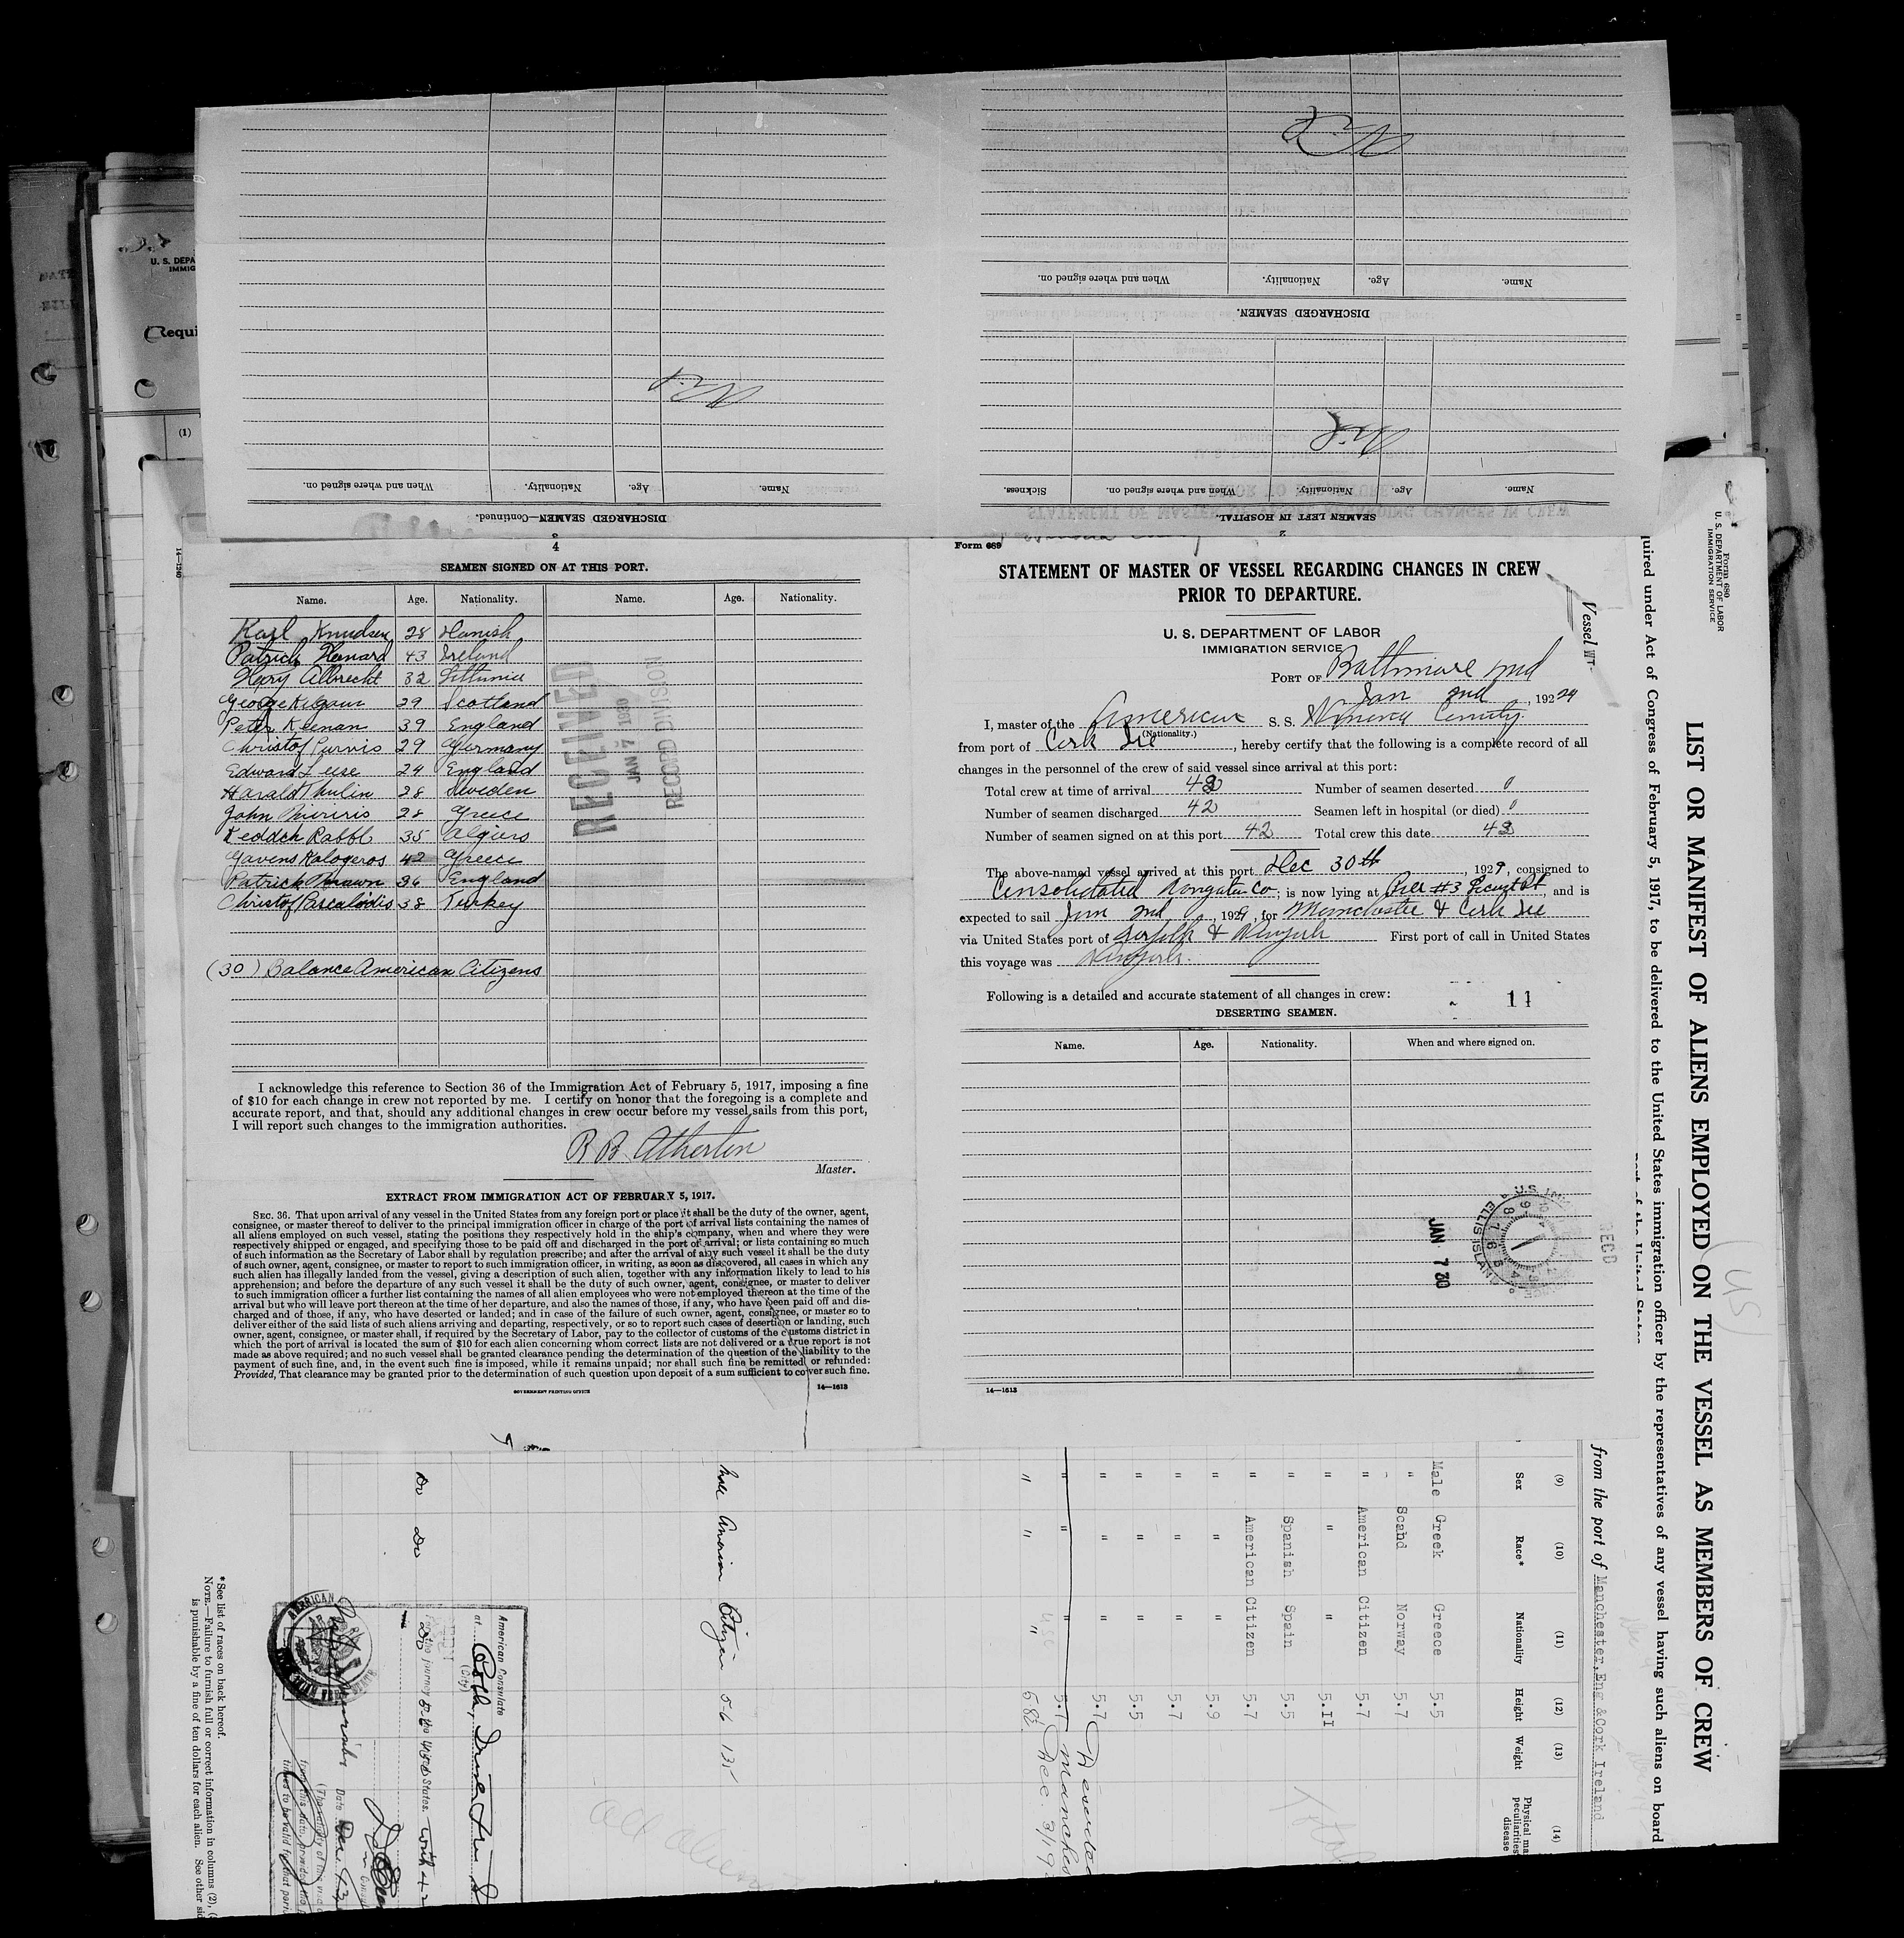 DISCHARGED SEAMEN—Continued.
Name. Age. Nationality. When and where signed on.
Nil
2
SEAMEN LEFT IN HOSPITAL.
Name. Age. Nationality. When and where signed on. Sickness.
Nil
DISCHARGED SEAMEN.
Name. Age. Nationality. When and where signed on.
Nil
U. S. DEPA
IMMIG
Requi
(1)
14—1240
4
SEAMEN SIGNED ON AT THIS PORT.
Name. Age. Nationality. Name. Age. Nationality.
Karl Knudsen 28 Danish
Patrick 43 Ireland
Albrecht 32
George Kilgour 29 Scotland
Peter Keenan 39 England
Christof Purvis 29 Germany
Edward Leese 24 England
Harald Thulin 28 Sweden
John 28 Greece
Rabbl 35 Algiers
Gavens Kalogeros 42 Greece
Patrick 36 England
Christof Pascalidis 38 Turkey
(30) Balance American Citizens
RECEIVED
JAN 7 1930
RECORD DIVISION
I acknowledge this reference to Section 36 of the Immigration Act of February 5, 1917, imposing a fine
of $10 for each change in crew not reported by me. I certify on honor that the foregoing is a complete and
accurate report, and that, should any additional changes in crew occur before my vessel sails from this port,
I will report such changes to the immigration authorities.
R B Atherton
Master.
EXTRACT FROM IMMIGRATION ACT OF FEBRUARY 5, 1917.
SEC. 36. That upon arrival of any vessel in the United States from any foreign port or place it shall be the duty of the owner, agent,
consignee, or master thereof to deliver to the principal immigration officer in charge of the port of arrival lists containing the names of
all aliens employed on such vessel, stating the positions they respectively hold in the ship's company, when and where they were
respectively shipped or engaged, and specifying those to be paid off and discharged in the port of arrival; or lists containing so much
of such information as the Secretary of Labor shall by regulation prescribe; and after the arrival of any such vessel it shall be the duty
of such owner, agent, consignee, or master to report to such immigration officer, in writing, as soon as discovered, all cases in which any
such alien has illegally landed from the vessel, giving a description of such alien, together with any information likely to lead to his
apprehension; and before the departure of any such vessel it shall be the duty of such owner, agent, consignee, or master to deliver
to such immigration officer a further list containing the names of all alien employees who were not employed thereon at the time of the
arrival but who will leave port thereon at the time of her departure, and also the names of those, if any, who have been paid off and dis-
charged and of those, if any, who have deserted or landed; and in case of the failure of such owner, agent, consignee, or master so to
deliver either of the said lists of such aliens arriving and departing, respectively, or so to report such cases of desertion or landing, such
owner, agent, consignee, or master shall, if required by the Secretary of Labor, pay to the collector of customs of the customs district in
which the port of arrival is located the sum of $10 for each alien concerning whom correct lists are not delivered or a true report is not
made as above required; and no such vessel shall be granted clearance pending the determination of the question of the liability to the
payment of such fine, and, in the event such fine is imposed, while it remains unpaid; nor shall such fine be remitted or refunded:
Provided, That clearance may be granted prior to the determination of such question upon deposit of a sum sufficient to cover such fine.
GOVERNMENT PRINTING OFFICE
14—1613
Form 689
STATEMENT OF MASTER OF VESSEL REGARDING CHANGES IN CREW
PRIOR TO DEPARTURE.
U. S. DEPARTMENT OF LABOR
IMMIGRATION SERVICE
PORT OF Baltimore Md
Jan 2nd, 1929
I, master of the American S. S. Winona County
(Nationality.)
from port of Cork Ire, hereby certify that the following is a complete record of all
changes in the personnel of the crew of said vessel since arrival at this port:
Total crew at time of arrival 43 Number of seamen deserted 0
Number of seamen discharged 42 Seamen left in hospital (or died) 0
Number of seamen signed on at this port 42 Total crew this date 43
The above-named vessel arrived at this port Dec 30th, 1929, consigned to
Consolidated Navigation Co; is now lying at Pier #3 Locust Pt, and is
expected to sail Jan 2nd, 1929, for Manchester & Cork Ire
via United States port of Norfolk & Newyork First port of call in United States
this voyage was Newyork.
Following is a detailed and accurate statement of all changes in crew:
11
DESERTING SEAMEN.
Name. Age. Nationality. When and where signed on.
JAN 7 30
ELLIS ISLAND
RECD
14—1613
Vessel
Form 680
U. S. DEPARTMENT OF LABOR
IMMIGRATION SERVICE
LIST OR MANIFEST OF ALIENS EMPLOYED ON THE VESSEL AS MEMBERS OF CREW
uired under Act of Congress of February 5, 1917, to be delivered to the United States immigration officer by the representatives of any vessel having such aliens on board
port of the United States
from the port of Manchester, Eng &Cork Ireland
(9) (10) (11) (12) (13) (14)
Sex Race* Nationality Height Weight Physical ma
peculiarities
disease
Male Greek Greece 5.5
" Scand Norway 5.7
" American Citizen 5.7
" " " 5.11
" Spanish Spain 5.5
" American Citizen 5.7
" " " 5.9
" " " 5.7
" " " 5.5
" " " 5.7
" " " 5.7
" " " 5.8½
Deserted
Manches
Dec. 3/19
Total
Male American Citizen 5-6 135
all aliens
Do Do Do
American Consulate
at Cork,
(City)
For the journey to the United States.
Date Dec. 13
*See list of races on back hereof.
NOTE.—Failure to furnish full or correct information in columns (2), (
is punishable by a fine of ten dollars for each alien. See other sid